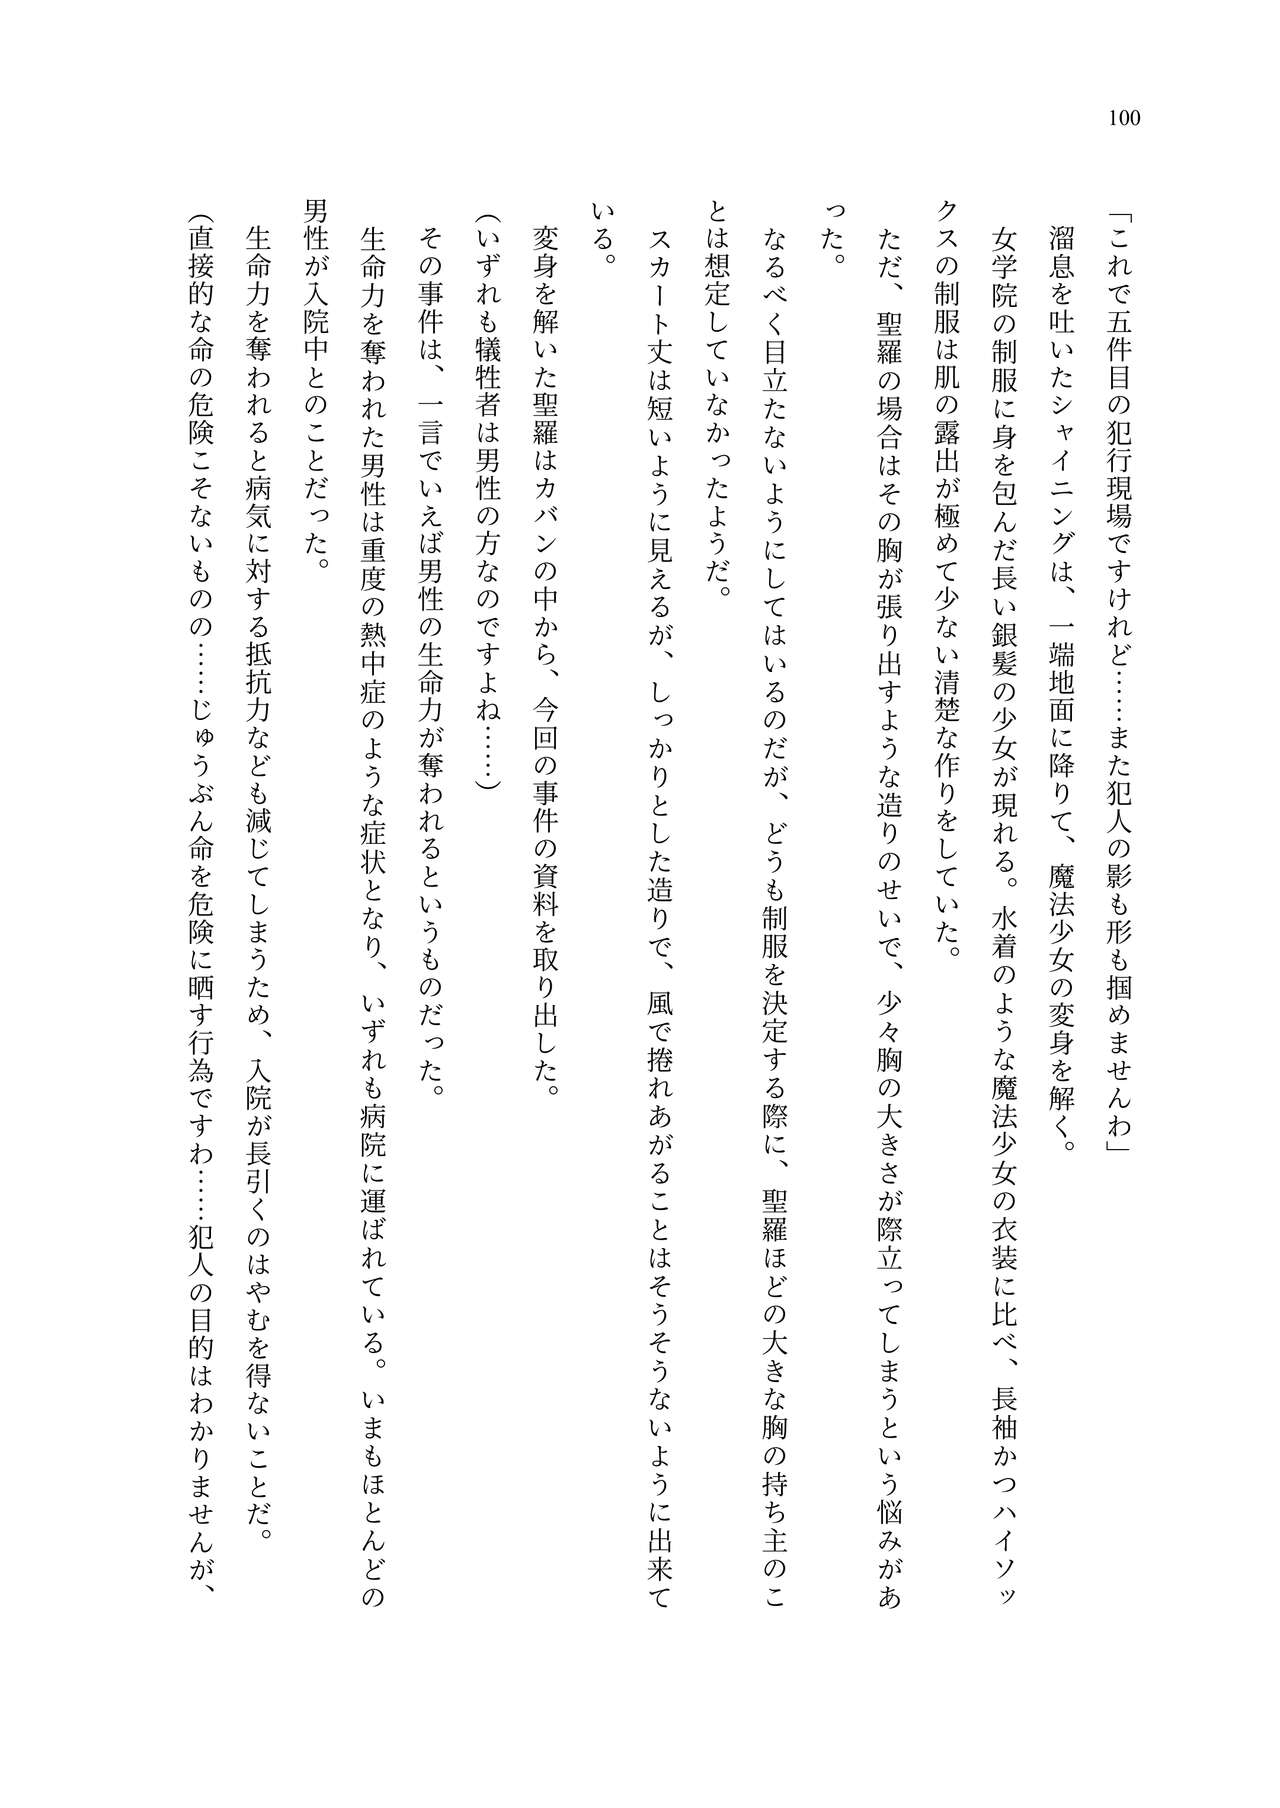 100
「これで五件目の犯行現場ですけれど……また犯人の影も形も掴めませんわ」
　溜息を吐いたシャイニングは、一端地面に降りて、魔法少女の変身を解く。
　女学院の制服に身を包んだ長い銀髪の少女が現れる。水着のような魔法少女の衣装に比べ、長袖かつハイソッ
クスの制服は肌の露出が極めて少ない清楚な作りをしていた。
　ただ、聖羅の場合はその胸が張り出すような造りのせいで、少々胸の大きさが際立ってしまうという悩みがあ
った。
　なるべく目立たないようにしてはいるのだが、どうも制服を決定する際に、聖羅ほどの大きな胸の持ち主のこ
とは想定していなかったようだ。
　スカート丈は短いように見えるが、しっかりとした造りで、風で捲れあがることはそうそうないように出来て
いる。
　変身を解いた聖羅はカバンの中から、今回の事件の資料を取り出した。
（いずれも犠牲者は男性の方なのですよね……）
　その事件は、一言でいえば男性の生命力が奪われるというものだった。
　生命力を奪われた男性は重度の熱中症のような症状となり、いずれも病院に運ばれている。いまもほとんどの
男性が入院中とのことだった。
　生命力を奪われると病気に対する抵抗力なども減じてしまうため、入院が長引くのはやむを得ないことだ。
（直接的な命の危険こそないものの……じゅうぶん命を危険に晒す行為ですわ……犯人の目的はわかりませんが、